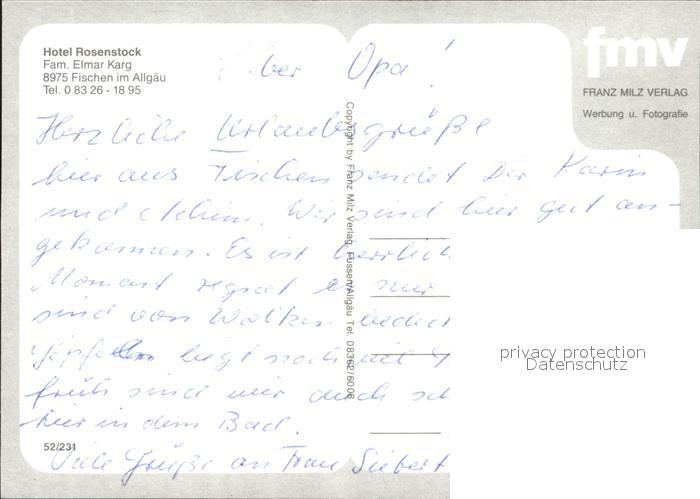 Hotel Rosenstock
Fam. Elmar Karg
8975 Fischen im Allgäu
Tel. 0 83 26 - 18 95
fmv
FRANZ MILZ VERLAG
Werbung u. Fotografie
Opa!
Herzliche Urlaubsgrüße
hier aus Fischen sendet Dir Karin
und Achim. Wir sind hier gut an-
gekommen. Es ist herrlich
Moment regnet es nur
sind von Wolken bedeckt
liegt noch viel
früh sind wir auch
hier in dem Bad.
Viele Grüße an Frau Siebert
Copyright by Franz Milz Verlag, Füssen/Allgäu Tel. 08362/6006
52/231
privacy protection
Datenschutz